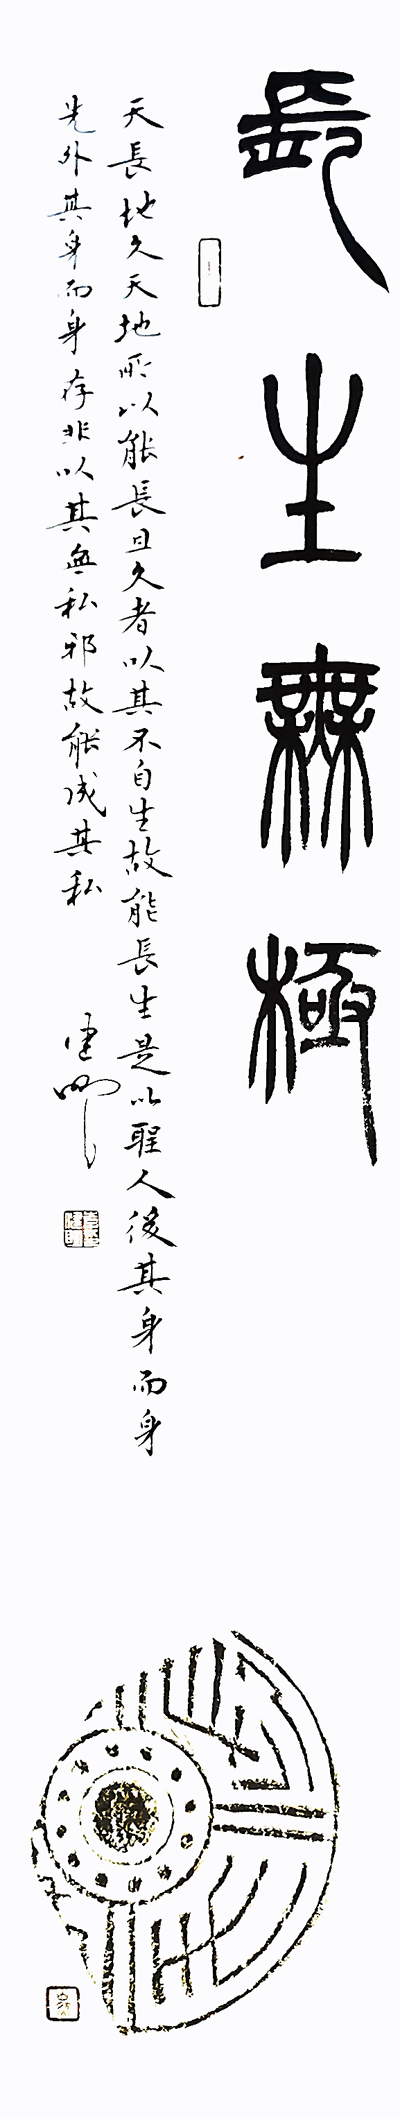 長生無極
天長地久天地所以能長且久者以其不自生故能長生是以聖人後其身而身
先外其身而身存非以其無私邪故能成其私